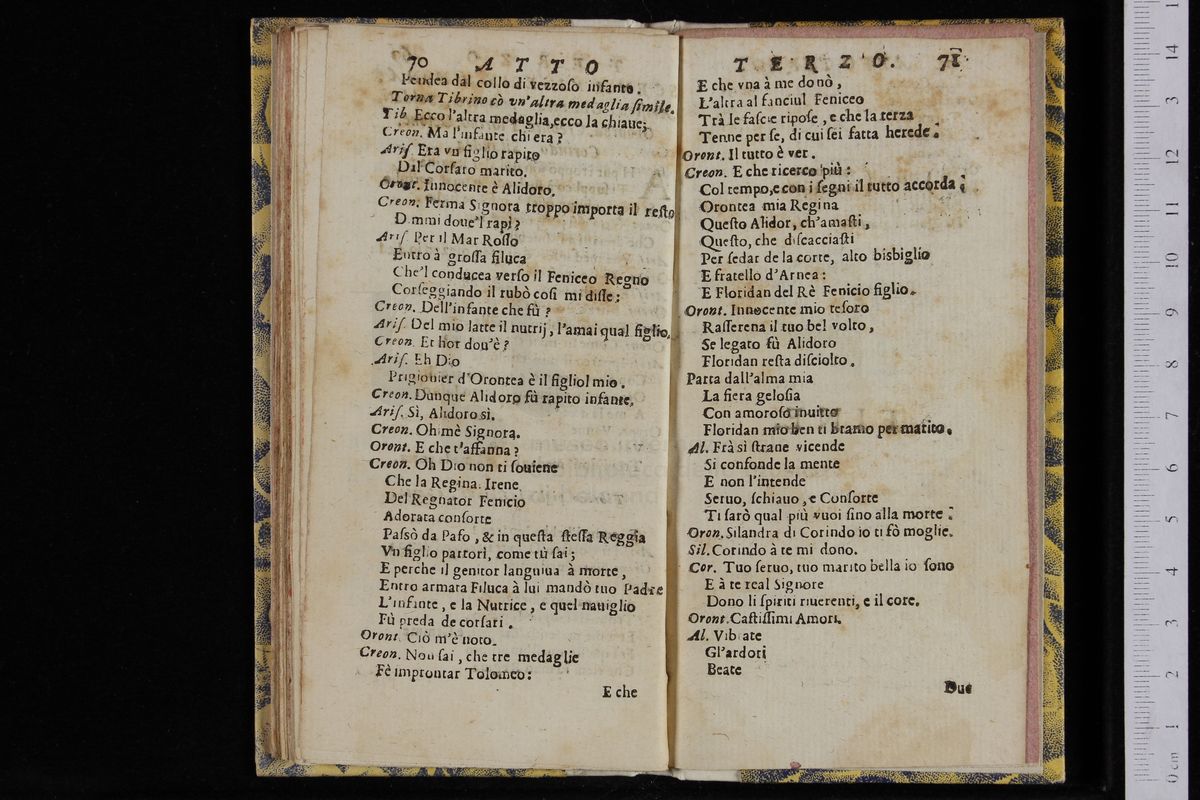 70 ATTO
Pendea dal collo di vezzoſo infante.
Torna Tibrino cò vn'altra medaglia ſimile.
Tib. Ecco l'altra medaglia, ecco la chiaue;
Creon. Ma l'infante chi era?
Ariſ. Era vn figlio rapito
Dal Corſaro marito.
Oront. Innocente è Alidoro.
Creon. Ferma Signora troppo importa il reſto
Dimmi doue'l rapì?
Ariſ. Per il Mar Roſſo
Entro à groſſa filuca
Che'l conducea verſo il Feniceo Regno
Corſeggiando il rubò coſi mi diſſe:
Creon. Dell'infante che fù?
Ariſ. Del mio latte il nutrij, l'amai qual figlio.
Creon. Et hor dou'è?
Ariſ. Eh Dio
Prigionier d'Orontea è il figliol mio.
Creon. Dunque Alidoro fù rapito infante.
Ariſ. Sì, Alidoro sì.
Creon. Ohimè Signora.
Oront. E che t'affanna?
Creon. Oh Dio non ti ſouiene
Che la Regina Irene
Del Regnator Fenicio
Adorata conſorte
Paſsò da Pafo, & in queſta ſteſſa Reggia
Vn figlio partorì, come tù ſai;
E perche il genitor languiua à morte,
Entro armata Filuca à lui mandò tuo Padre
L'infante, e la Nutrice, e quel nauiglio
Fù preda de corſari.
Oront. Ciò m'è noto.
Creon. Non ſai, che tre medaglie
Fè improntar Tolomeo:
E che
TERZO. 71
E che vna à me donò,
L'altra al fanciul Feniceo
Trà le faſcie ripoſe, e che la terza
Tenne per ſe, di cui ſei fatta herede.
Oront. Il tutto è ver.
Creon. E che ricerco più:
Col tempo, e con i ſegni il tutto accorda;
Orontea mia Regina
Queſto Alidor, ch'amaſti,
Queſto, che diſcacciaſti
Per ſedar de la corte, alto bisbiglio
E fratello d'Arnea:
E Floridan del Rè Fenicio figlio.
Oront. Innocente mio teſoro
Raſſerena il tuo bel volto,
Se legato fù Alidoro
Floridan reſta diſciolto.
Parta dall'alma mia
La fiera geloſia
Con amoroſo inuitto
Floridan mio ben ti bramo per marito.
Al. Frà sì ſtrane vicende
Si confonde la mente
E non l'intende
Seruo, ſchiauo, e Conſorte
Ti ſarò qual più vuoi ſino alla morte:
Oron. Silandra di Corindo io ti fò moglie.
Sil. Corindo à te mi dono.
Cor. Tuo ſeruo, tuo marito bella io ſono
E à te real Signore
Dono li ſpiriti riuerenti, e il core.
Oront. Caſtiſſimi Amori.
Al. Vibrate
Gl'ardori
Beate
Due
14
13
12
11
10
9
8
7
6
5
4
3
2
1
0 cm